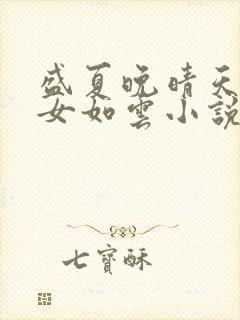 盛夏晚晴天
女如雲小說
七寶酥